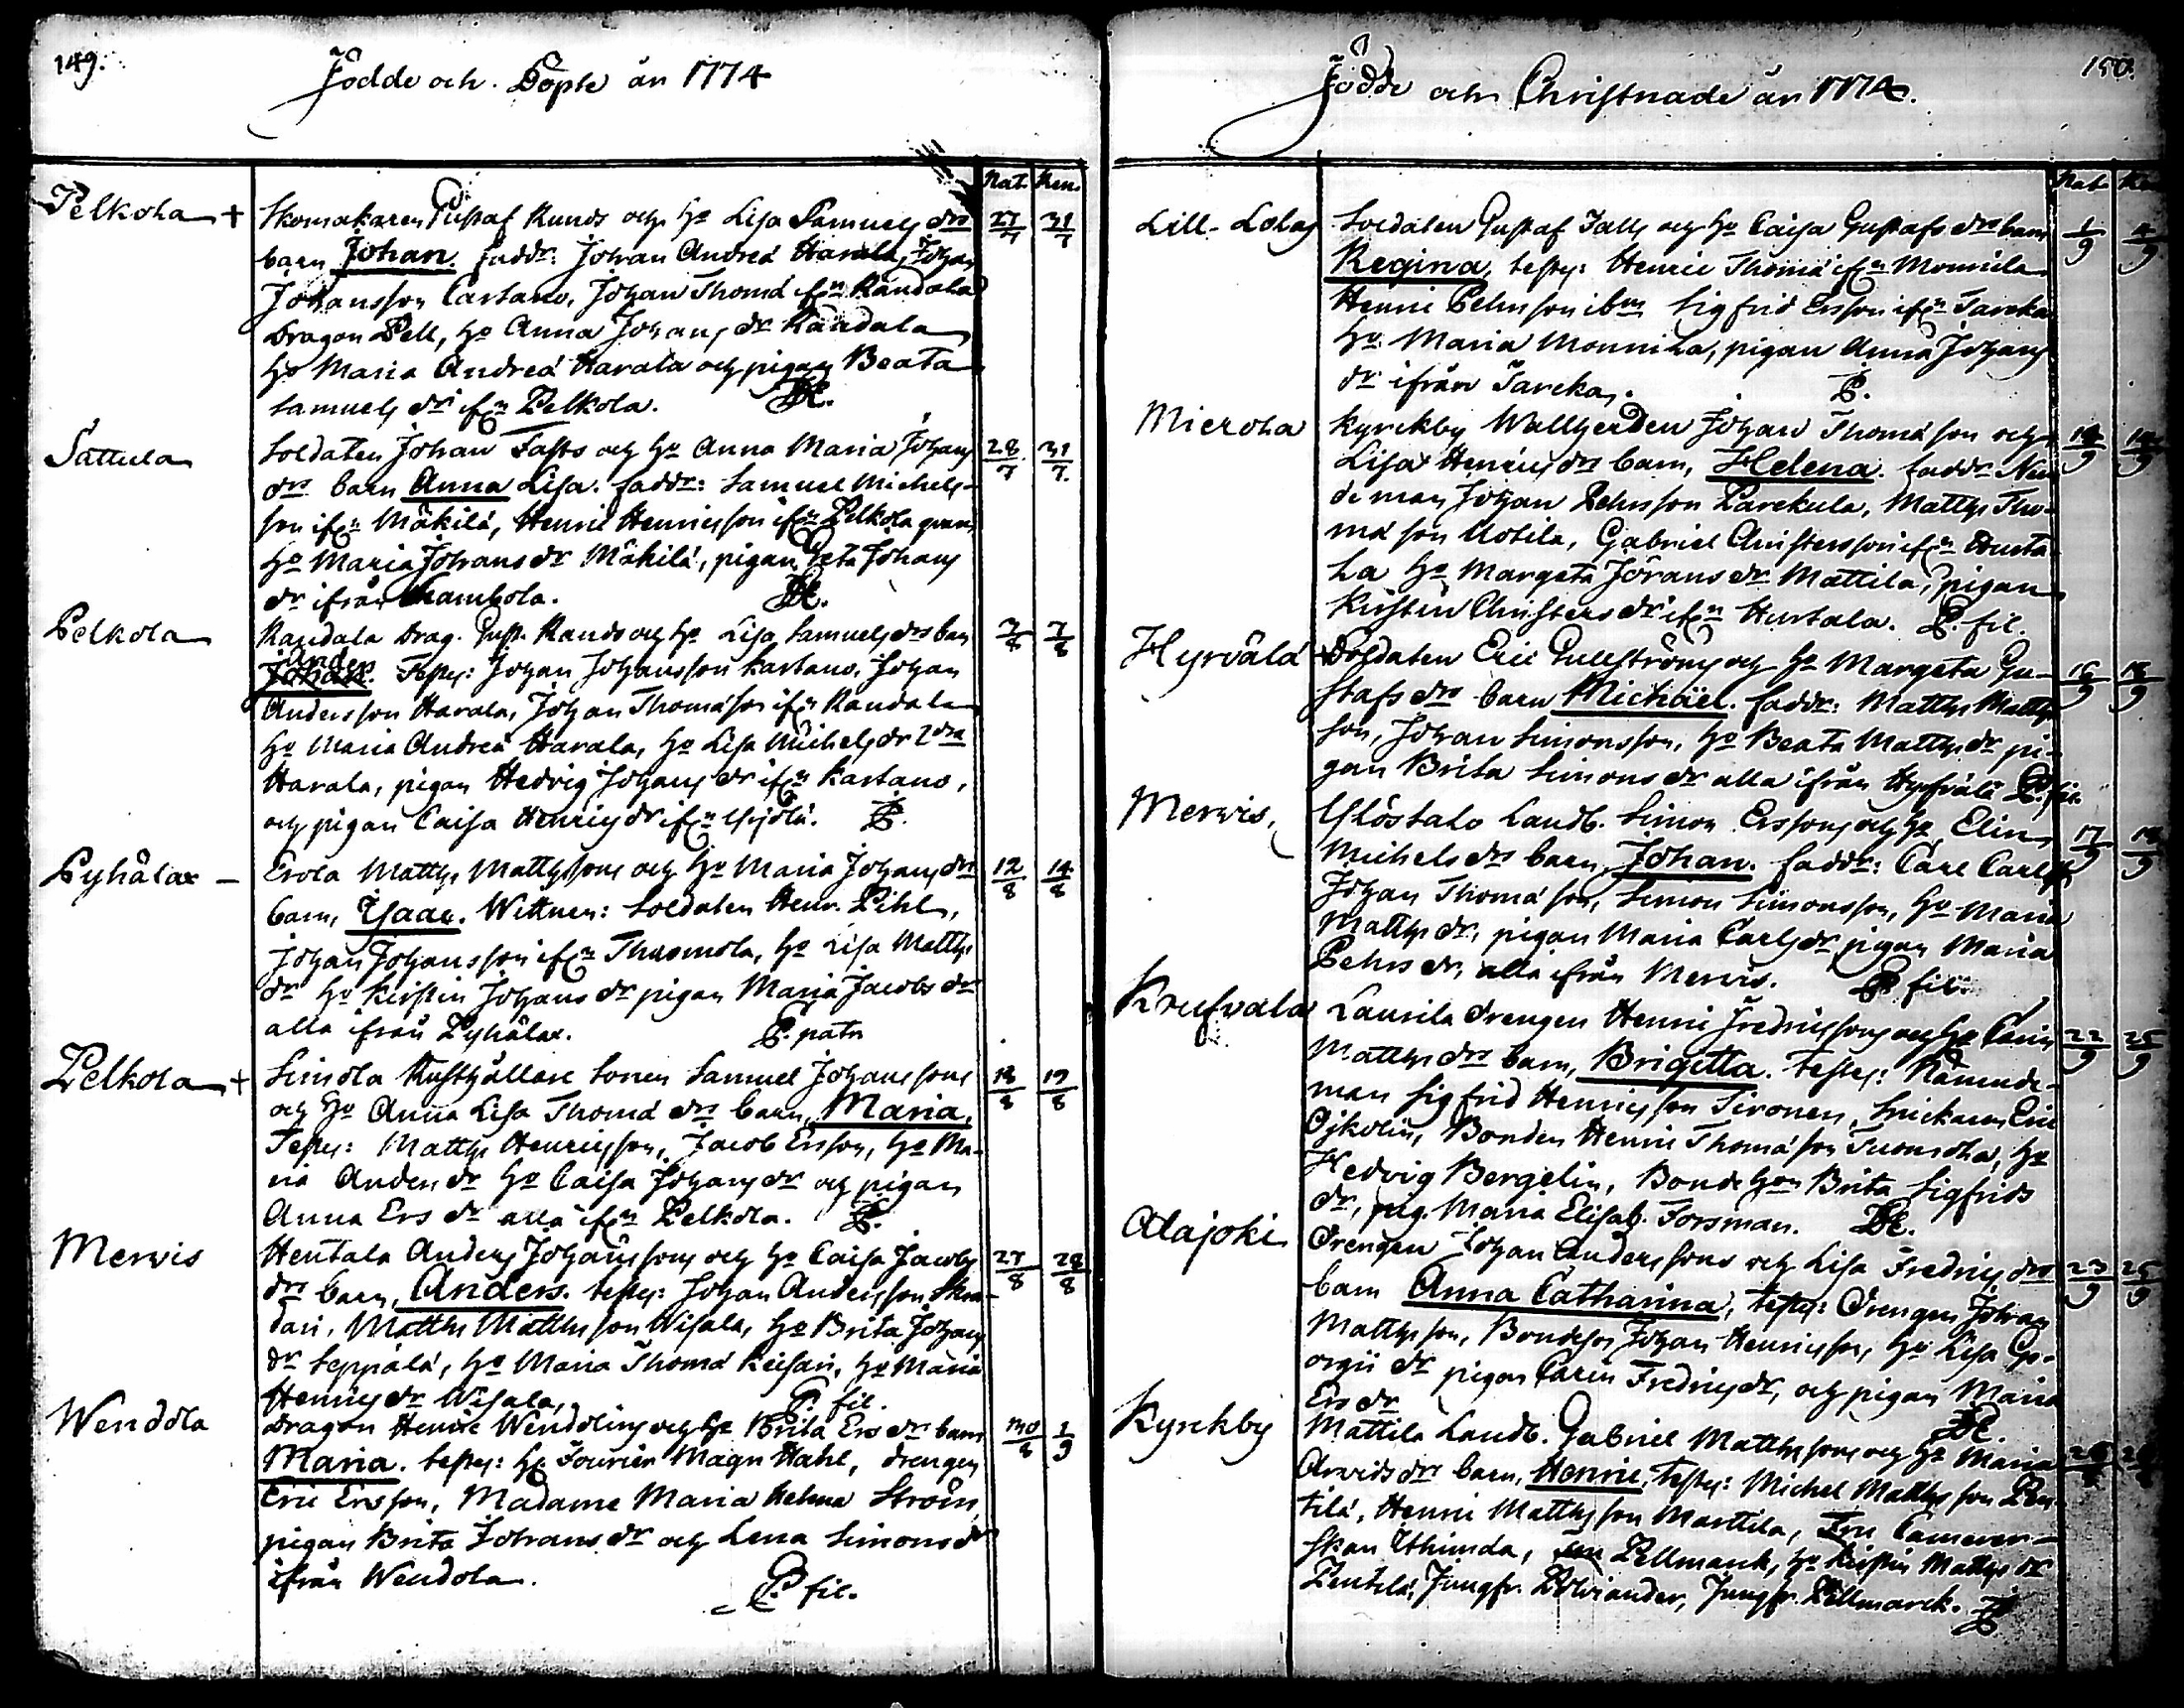 149.
Födde och Döpte år 1774
Nat. Ren.
Pelkola + Skomakaren Gustaf Runds och Ho Lisa Samuels drs 27/7 31/7
barn Johan. faddr: Johan Andreä Harala, Johan
Johansson Cartano, Johan Thomä ifrn Randala
Dragon Pell, Ho Anna Johans dr Randala
Ho Maria Andreä Harala och pigan Beata
Samuels dr ifrn Pelkola.
Sattula Soldaten Johan Fasts och Ho Anna Maria Johans 28/7 31/7
drs barn Anna Lisa. faddr: Samuel Michels-
son ifrn Mäkilä, Henric Henricsson ifrn Pelkola qvarn
Ho Maria Johans dr Mäkilä, pigan Greta Johans
dr ifrån
Pelkola Randala Drag. Gust. Rands och Ho Lisa Samuels drs barn 7/8 7/8
Ander
Johan. Testes: Johan Johansson Kartano, Johan
Andersson Harala, Johan Thomäson ifrn Randala
Ho Maria Andreä Harala, Ho Lisa Michels dr 2dra
Harala, pigan Hedvig Johans dr ifrn Kartano,
och pigan Caisa Henrics dr ifrn P.
Pyhälax – Erola Matths Matthssons och Ho Maria Johans drs 12/8 14/8
barn, Isaac. Wittnen: Soldaten Henr. Pihl,
Johan Johansson ifrn Thuomola, Ho Lisa Matths
dr Ho Kirstin Johans dr pigan Maria Jacobs dr
alla ifrån Pyhälax. P. patr
Pelkola + Simola Rusthållare Sonen Samuel Johanssons 18/8 19/8
och Ho Anna Lisa Thomä drs barn, Maria,
Testes: Matths Henricsson, Jacob Ersson, Ho Ma-
ria Anders dr Ho Caisa Johans dr och pigan
Anna Ers dr alla ifrn Pelkola. P.
Mervis Hentala Anders Johanssons och Ho Caisa Jacobs 27/8 28/8
drs barn, Anders. testes: Johan Andersson Skra-
dari, Matths Matthsson Wisala, Ho Brita Johans
dr Seppälä, Ho Maria Thomä Keisari, Ho Maria
Henrics dr Wisala, P. fil.
Wendola Dragon Henric Wendolins och Ho Brita Ers drs barn 30/8 1/9
Maria. testes: Hr Fourier Magn Hahl, drengen
Eric Ersson, Madame Maria Helena Ström,
pigan Brita Johans dr och Lena Simons dr
ifrån Wendola.
P. fil.
150.
Födde och Christnade år 1774.
Nat.
Lill-Lolax Soldaten Gustaf Falls och Ho Caisa Gustafs drs barn 1/9 4/9
Regina, testes: Henric Thomä ifrn Monnila
Henric Pehrsson ibm Sigfrid Ersson ifrn Tareka
Ho. Maria Monnila, pigan Anna Johans
dr ifrån Tareka. P.
Mierola Kyrckby Wallherden Johan Thomä son och 14/9 14/9
Lisa Henrics drs barn, Helena. faddr. Näm
deman Johan Pehrsson Parekula, Matths Tho-
mä son Uotila, Gabriel Christersson ifrn Hurta
la Ho Margeta Jörans dr Mattila, pigan
Kirstin Christers dr ifrn Hurtala. P. fil.
Hyrvälä Soldaten Eric Gullströms och Ho Margeta Gu- 16/9 18/9
stafs drs barn Michäel. faddr: Matths Matths
son, Johan Simonsson, Ho Beata Matths dr pi-
gan Brita Simons dr alla ifrån Hyrfvälä P. fil.
Mervis, Ylöstalo Landb. Simon Erssons och Ho Elin 17/9 18/9
Michels drs barn, Johan. faddr: Carl Carlss
Johan Thomä son, Simon Simonsson, Ho Maria
Matths dr, pigan Maria Carls dr pigan Maria
Pehrs dr, alla ifrån Mervis. P. fil.
Krufvala Laurila drengen Henric Fredricssons och Ho Carin 22/9 25/9
Matths drs barn, Brigitta. testes: Nämnde-
man Sigfrid Henricsson Tironen, Snickaren Eric
Ojkolin, Bonden Henric Thomäson Tuomola, Ho
Hedvig Bergelin, Bonde Hon Brita Sigfrids
dr, pig. Maria Elisab. Forsman.
Alajoki Drengen Johan Anderssons och Lisa Fredrics drs 23/9 25/9
barn Anna Catharina, testes: Drengen Johan
Matthsson, Bondeson Johan Henricsson, Ho Lisa Ge-
orgii dr pigan Carin Fredrics dr, och pigan Maria
Ers dr
Kyrckby Mattila Landb. Gabriel Matthssons och Ho Maria
Arvids drs barn, Henric, testes: Michel Matthsson Pen-
tilä, Henric Matthsson Marttila, Fru Camerer-
skan Uthinda, Fru Pellmarck, Ho Kirstin Matths dr
Pentilä, Jungfr. Polviander, Jungfr. Pellmarck.